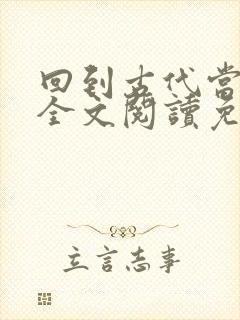 回到古代当
全文閱讀免
立言志事